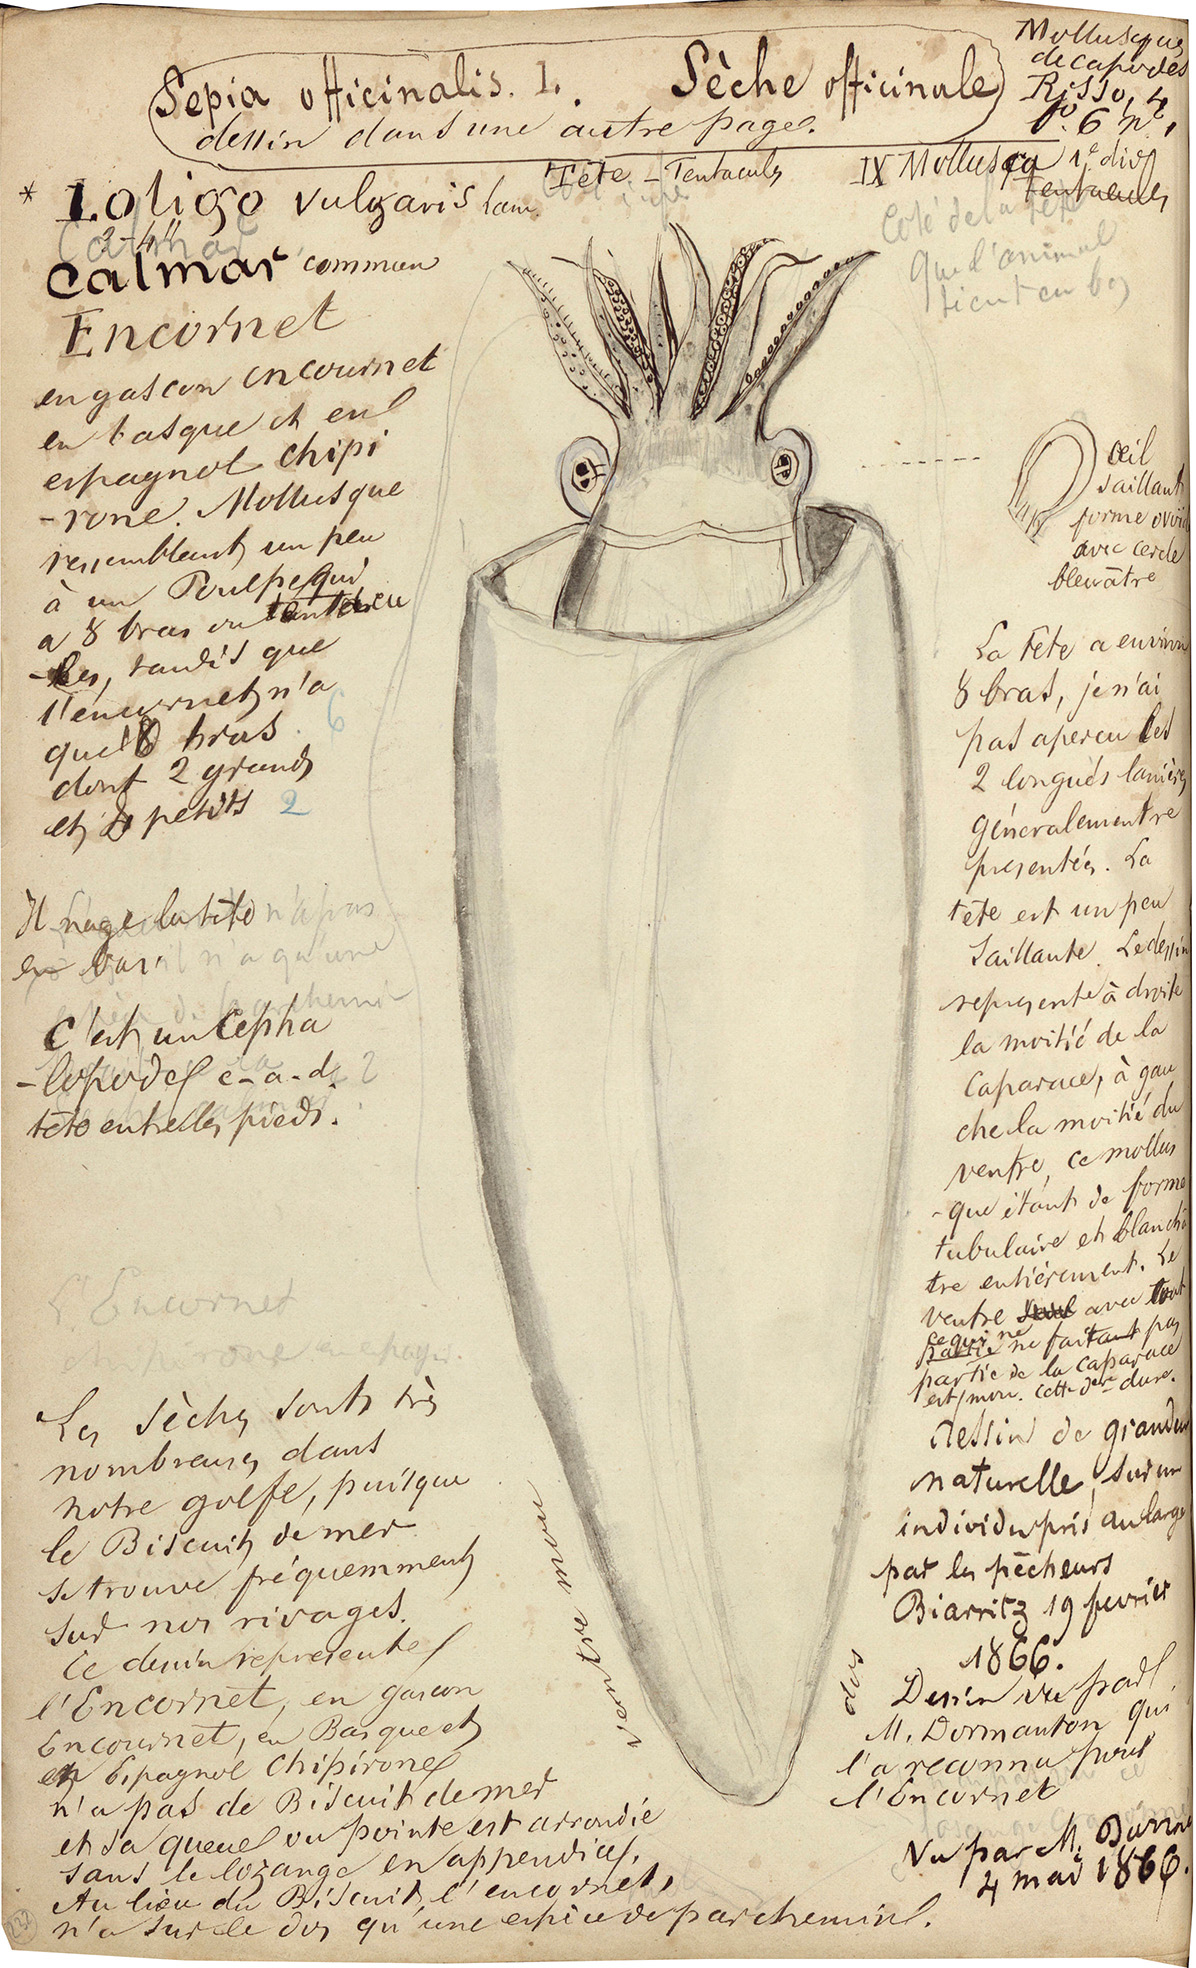 Sepia officinalis. L. Sèche officinale
dessin dans une autre page.
Mollusques
decapodes
Risso, 4,
IX Mollusca 1e div
Tentacules
Tête - Tentacules
* Loligo vulgaris Lam.
Calmar
Calmar commun
Encornet
en gascon encournet
en basque et en
espagnol chipi
-rone. Mollusque
ressemblant un peu
à un Poulpe qui
a 8 bras ou tentacu
-les, tandis que
l'encornet n'a
que 8 bras 6
dont 2 grands
et petits 2
Côté de la tête
que l'animal
tient en bas
œil
saillant
forme ovoïde
avec cercle
bleuâtre
La tête a environ
8 bras, je n'ai
pas aperçu les
2 longues lanières
généralement re
presentées. La
tête est un peu
saillante. Le dessin
represente à droite
la moitié de la
caparace, à gau
che la moitié du
ventre, ce mollus
-que étant de forme
tubulaire et blanchâ
tre entièrement. Le
ventre avec tout
ce qui ne fait pas
partie de la caparace
est mou. cette dere dure.
Dessin de grandeur
naturelle, sur un
individu pris au large
par les pêcheurs
Biarritz 19 fevrier
1866.
Dessin vu par
M. Dormanton qui
l'a reconnu pour
l'Encornet
Vu par M.
4 mai 1866.
Il nage la tête
en bas.
n'a pas
il n'a qu'une
C'est un Cepha
-lopode c-a-d.
tête entre les pieds.
L'Encornet
Les Sèches sont très
nombreuses dans
notre golfe, puisque
le Biscuit de mer
se trouve fréquemment
sur nos rivages.
Ce dessin represente
l'Encornet, en gascon
Encournet, en Basque et
en Espagnol Chipirone
n'a pas de Biscuit de mer
et sa queue ou pointe est arrondie
sans le lozange en appendice.
Au lieu du Biscuit, l'encornet,
n'a sur le dos qu'une espèce de parchemin.
ventre mou
dos